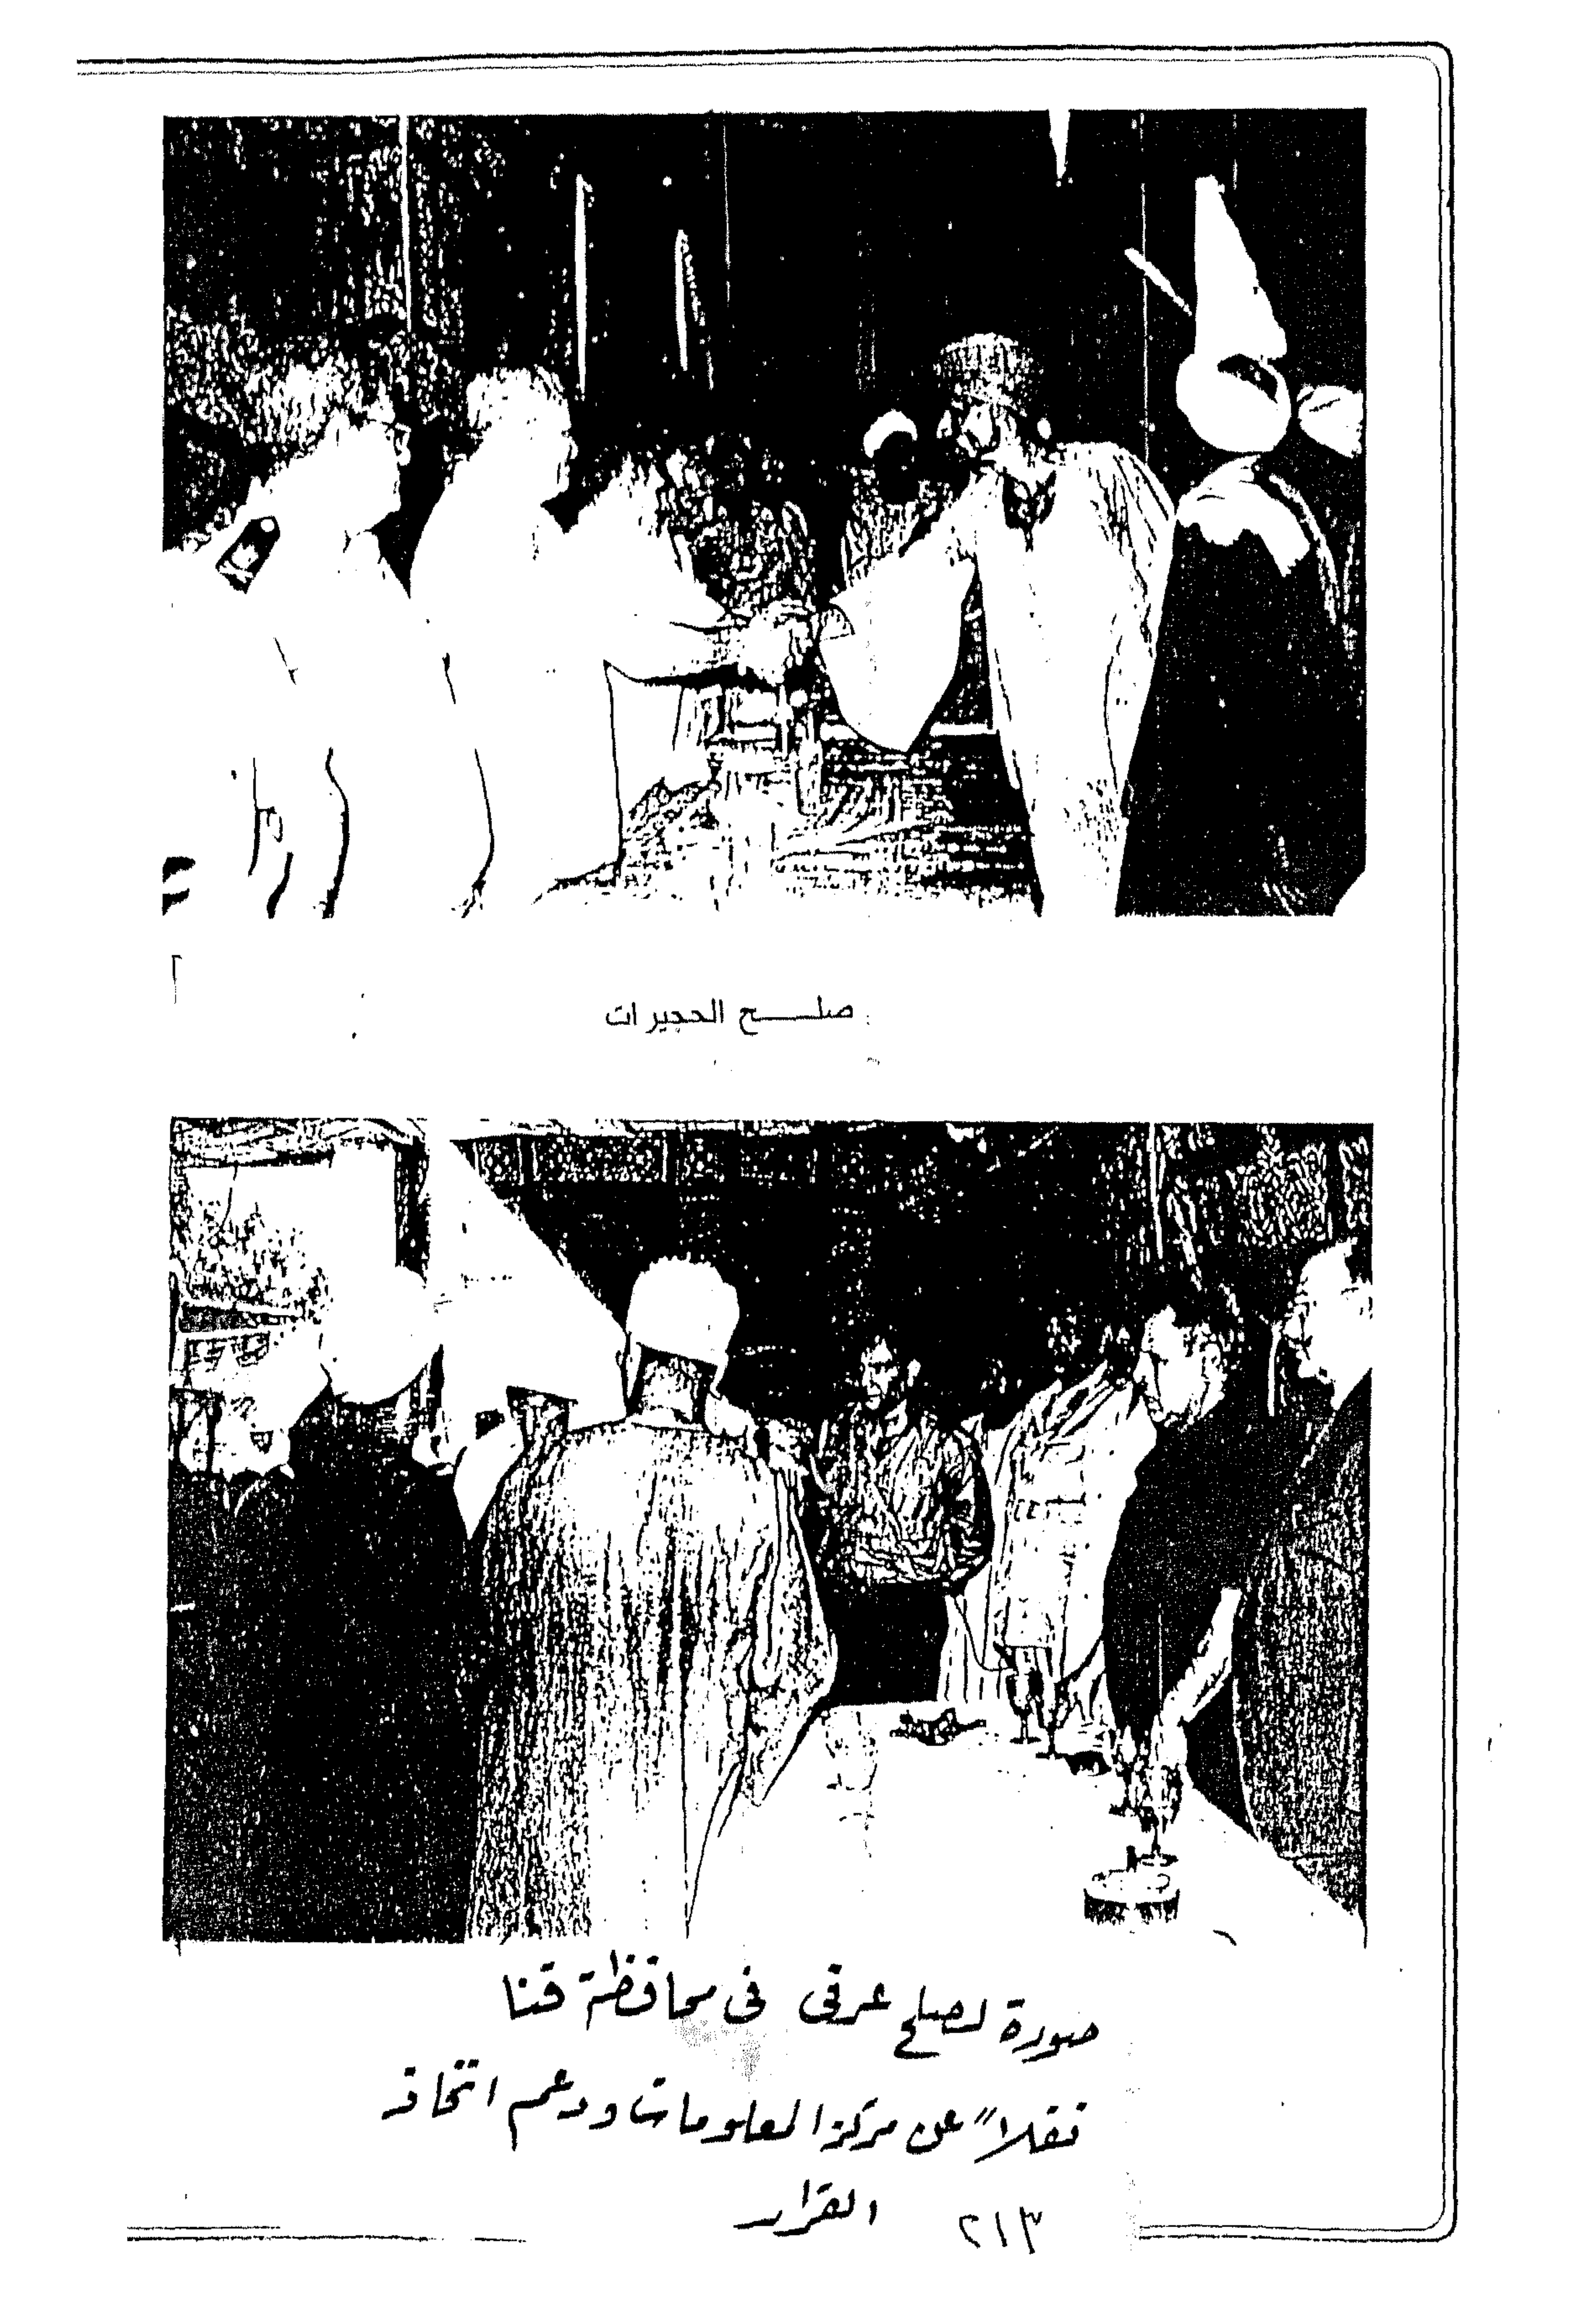 صلح الحجيرات
صورة لصلح عرفى فى محافظة قنا
نقلاً عن مركز المعلومات ودعم اتخاذ
القرار
٢١٣